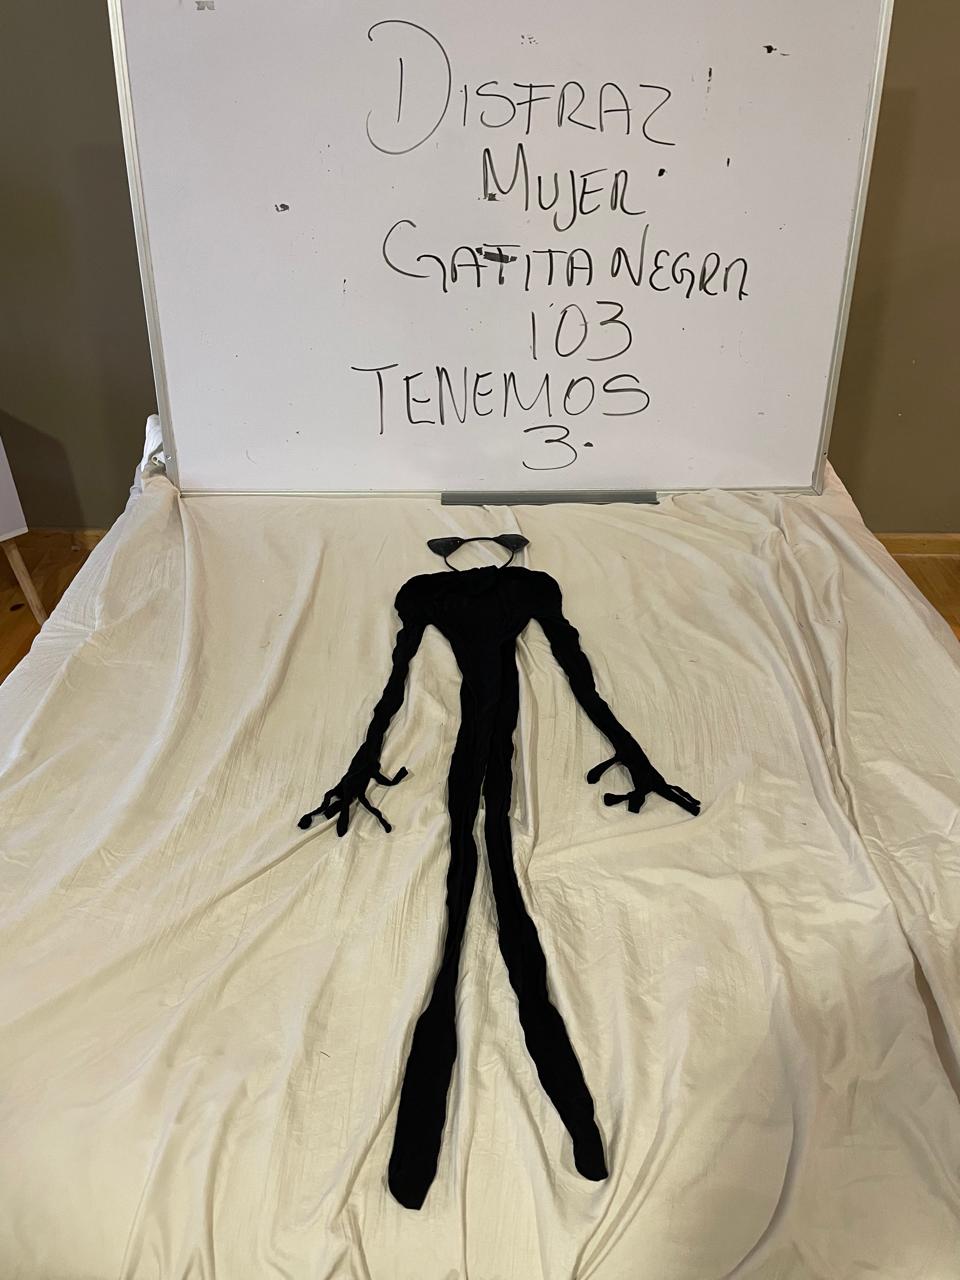 DISFRAZ
MUJER
GATITA NEGRA
103
TENEMOS
3.